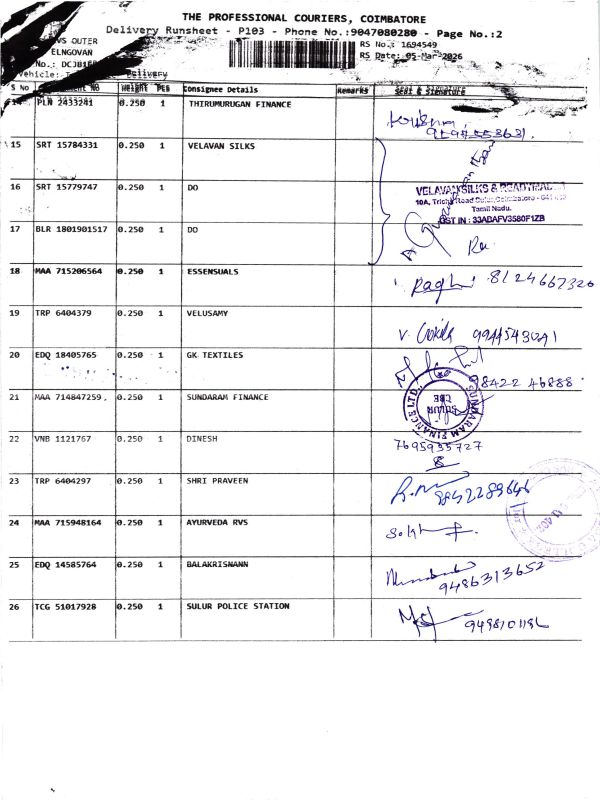 THE PROFESSIONAL COURIERS, COIMBATORE
Delivery Runsheet - P103 - Phone No.:9047080280 - Page No.:2
VS OUTER
RS No.: 1694549
ELNGOVAN
RS Date: 05-Mar-2026
No.: DCJB1
Vehicle: Delivery
S No NO Weight Pcs Consignee Details Remarks Seal & Signature
14 PLN 2433241 0.250 1 THIRUMURUGAN FINANCE
15 SRT 15784331 0.250 1 VELAVAN SILKS
16 SRT 15779747 0.250 1 DO
VELAVAN SILKS & READYMADES
10A, Trichy Road Sulur, Coimbatore - 641
Tamil Nadu.
GST IN : 33ADAFV3580F1ZB
17 BLR 1801901517 0.250 1 DO
18 MAA 715206564 0.250 1 ESSENSUALS
Raghi 8124667320
19 TRP 6404379 0.250 1 VELUSAMY
V. Gokila 9944543041
20 EDQ 18405765 0.250 1 GK TEXTILES
98422 46888
21 MAA 714847259, 0.250 1 SUNDARAM FINANCE
SUNDARAM FINANCE LTD.,
SULUR
CBE
22 VNB 1121767 0.250 1 DINESH
7695935727
23 TRP 6404297 0.250 1 SHRI PRAVEEN
9842289646
24 MAA 715948164 0.250 1 AYURVEDA RVS
25 EDQ 14585764 0.250 1 BALAKRISNANN
9486313652
26 TCG 51017928 0.250 1 SULUR POLICE STATION
9498101196